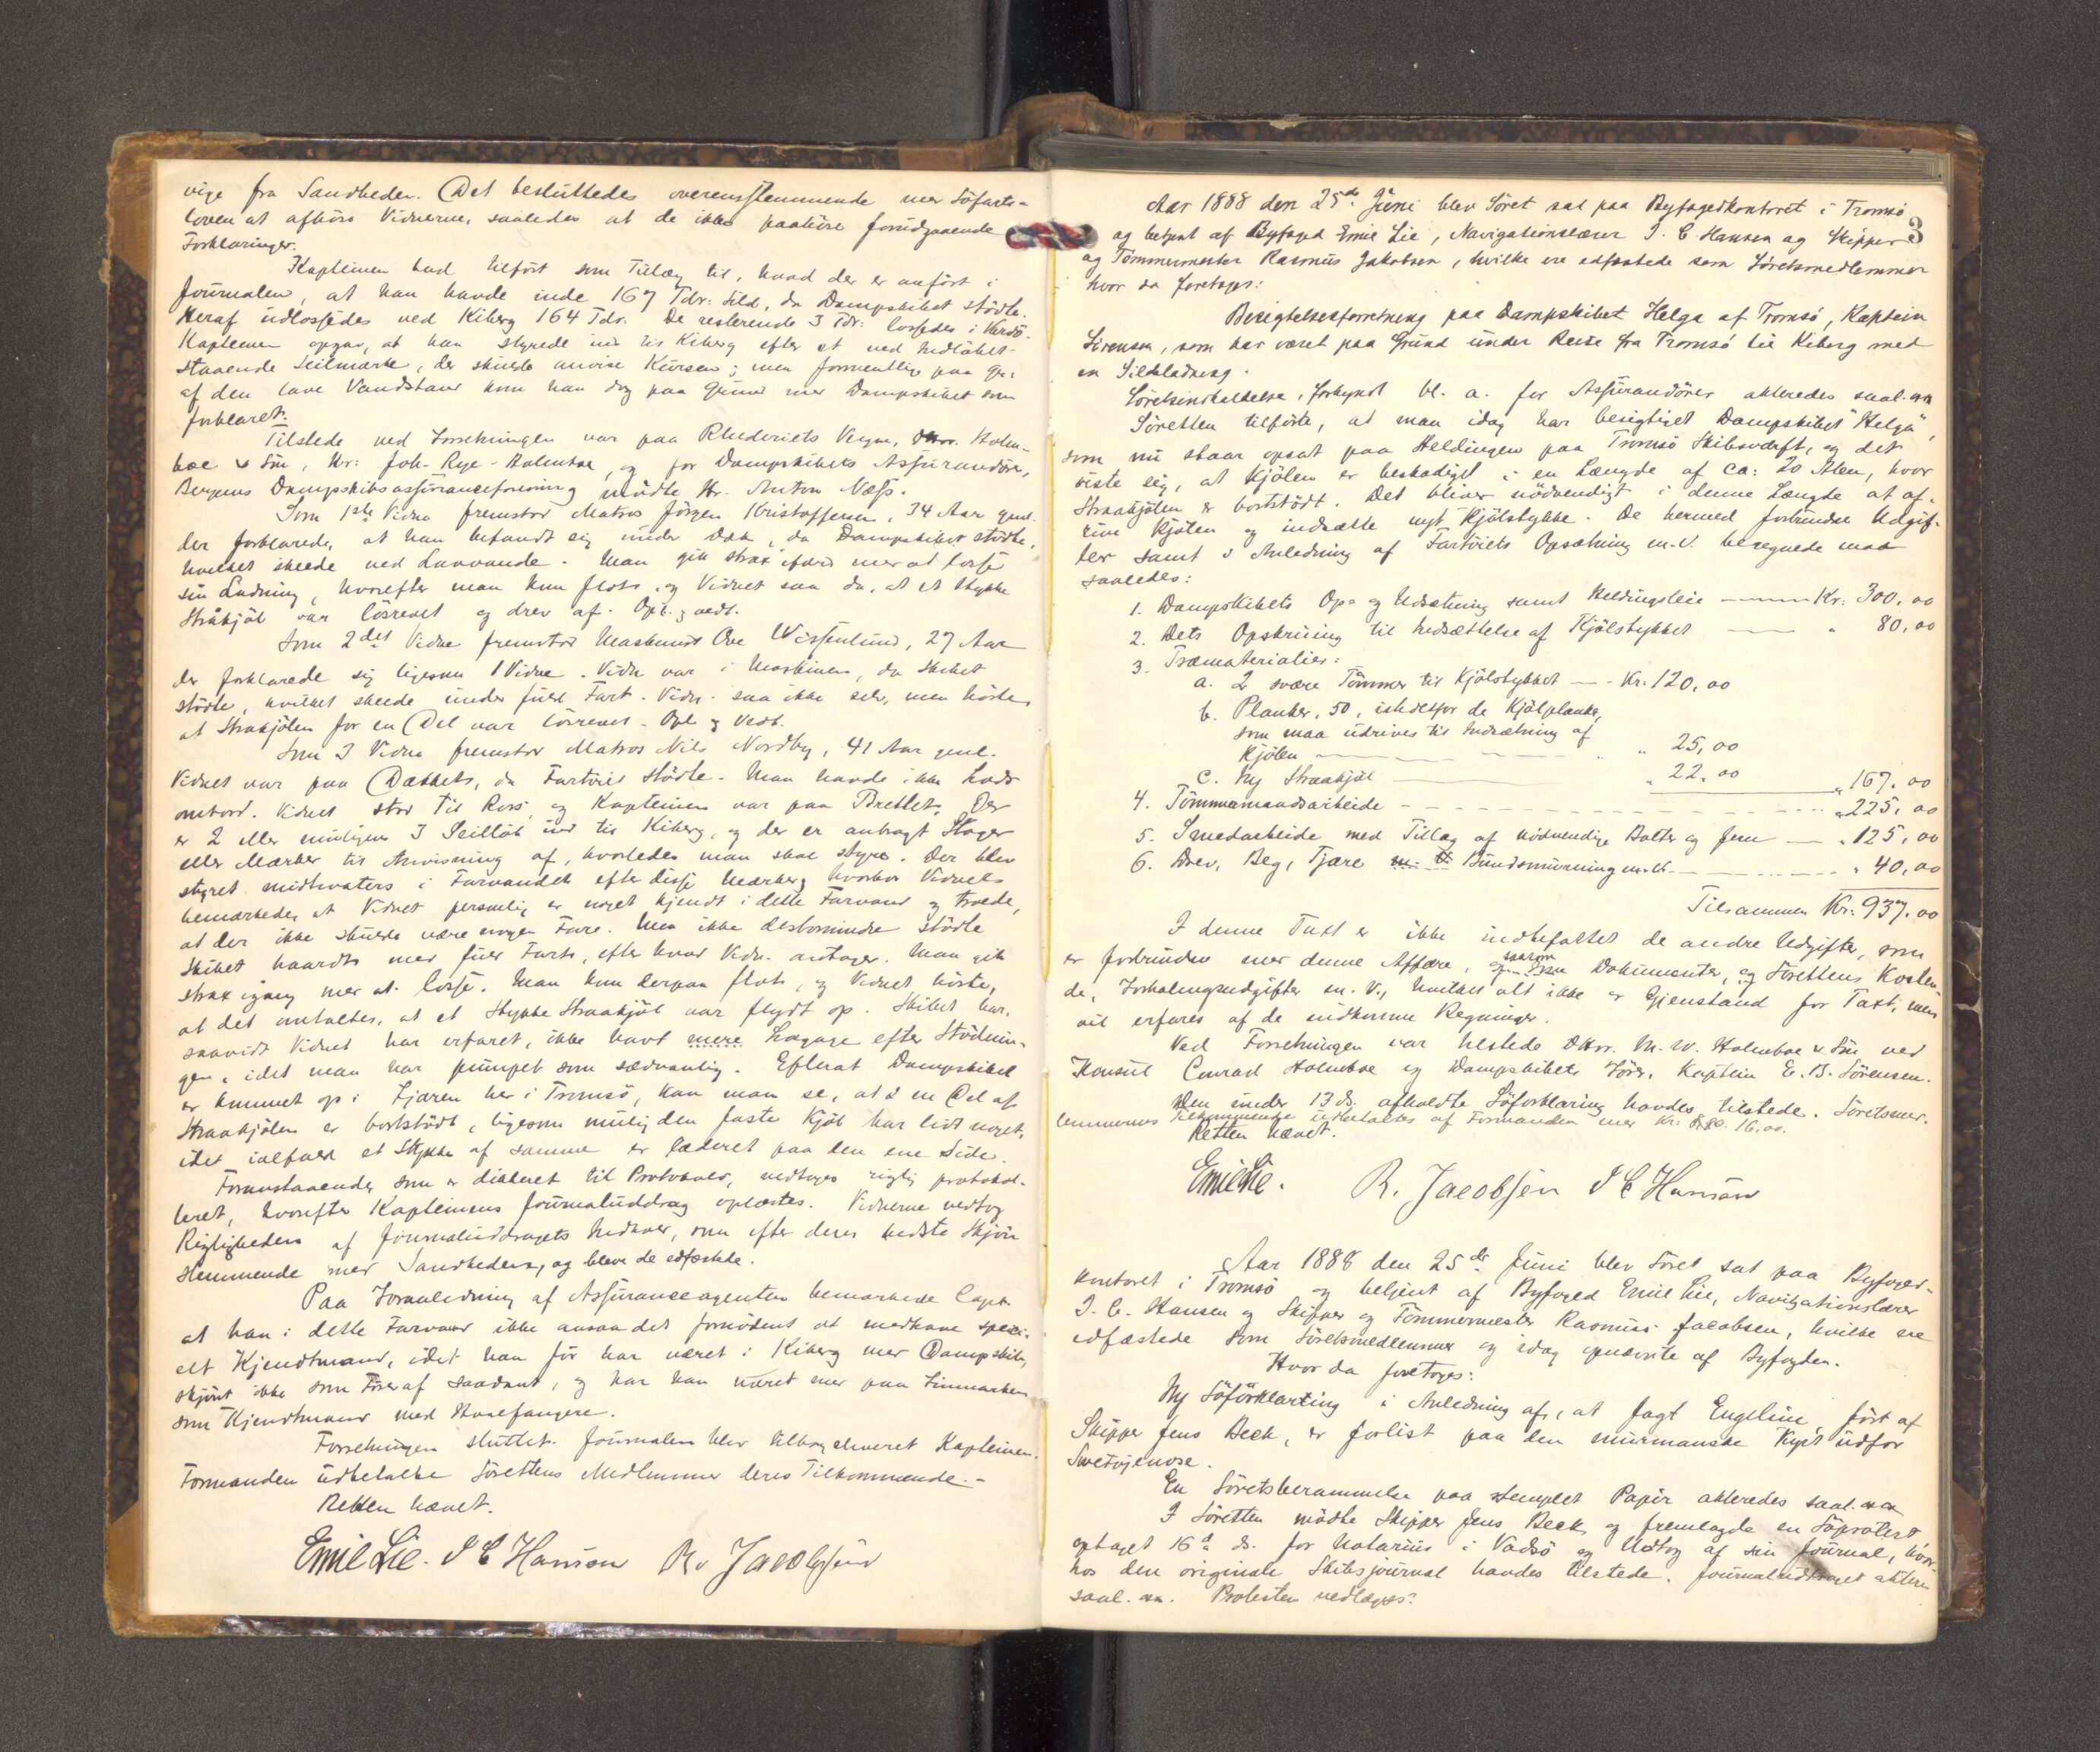 vige fra Sandheden. Det besluttedes overensstemmende med Söfarts-
loven at afhöre Vidnerne, saaledes at de ikke paahöre forudgaaende
Forklaringer.
Kapteinen lod tilført som Tillæg til, hvad der er anført i
Journalen, at han havde inde 167 Tdr: Sild, da Dampskibet stödte.
Heraf udlossedes ved Kiberg 164 Tdr. De resterende 3 Tdr: lossedes i Vardö.
Kapteinen opgav, at han styrede ind til Kiberg efter et ved Indlöbet
staaende Seilmærke, der skulde anvise Kursen; men formentlig paa Gr.
af den lave Vandstand kom han dog paa Grund med Dampskibet som
forklaret.
Tilstede ved Forretningen var paa Rhederiets Vegne, DHrr. Holm-
boe & Sön, Hr: Joh. Rye-Holmboe, og for Dampskibets Assurandör,
Bergens Dampskibsassuranceforening mödte Hr. Anton Næss.
Som 1ste Vidne fremstod Matros Jörgen Kristoffersen, 34 Aar gml.
der forklarede, at han befandt sig under Dæk, da Dampskibet stödte,
hvilket skeede ved Lavvande. Man gik strax ifærd med at losse
sin Ladning, hvorefter man kom flot, og Vidnet saa da, at et Stykke
Stråkjöl var lösrevet og drev af. Opl. & vedt.
Som 2det Vidne fremstod Maskinist Ove Wissenlund, 27 Aar
der forklarede sig ligesom 1 Vidne. Vidn var i Maskinen, da Skibet
stödte, hvilket skeede under fuld Fart. Vidn. saa ikke selv, men hörte
at Strakjölen for en Del var lösrevet. Opl & Vedt.
Som 3 Vidne fremstod Matros Nils Nordby, 41 Aar gml.
Vidnet var paa Dækket, da Fartöiet stödte. Man havde ikke Lods
ombord. Vidnet stod til Rors, og Kapteinen var paa Brettet. Der
er 2 eller muligens 3 Seillöb ind til Kiberg, og der er anbragt Stager
eller Mærker til Anvisning af, hvorledes man skal styre. Der blev
styret midtvaters i Farvandet efter disse Mærker, hvorhos Vidnet
bemærkede, at Vidnet personlig er noget kjendt i dette Farvand og troede,
at der ikke skulde være nogen Fare. Men ikke destomindre stödte
Skibet haardt med fuld Fart, efter hvad Vidn. antager. Man gik
strax igang med at losse. Man kom derpaa flot, og Vidnet hörte,
at det omtaltes, at et Stykke Straakjöl var flydt op. Skibet har,
saavidt Vidnet har erfaret, ikke havt mere Lægage efter Stödnin-
gen, idet man har pumpet som sædvanlig. Efterat Dampskibet
er kommet op i Fjæren her i Tromsö, kan man se, at en Del af
Straakjölen er bortstödt, ligesom mulig den faste Kjöl har lidt noget,
idet ialfald et Stykke af samme er læderet paa den ene Side.
Foranstaaende, som er dikteret til Protokolls, vedtoges rigtig protokol-
leret, hvorefter Kapteinens Journaluddrag oplæstes. Vidnerne vedtog
Rigtigheden af Journaluddragets Indhold, som efter deres bedste Skjön
stemmende med Sandheden, og bleve de edfæstede.
Paa Foranledning af Assuranceagenten bemærkede Capt.
at han i dette Farvand ikke ansaa det fornödent at medhave speci-
elt Kjendtmand, idet han för har været i Kiberg med Dampskib,
skjönt ikke som Förer af saadant, og har han været med paa Finmarken
som Kjendtmand med Hvalfangere.
Forretningen sluttet. Journalen blev tilbageleveret Kapteinen.
Formanden udbetalte Sörettens Medlemmer deres Tilkommende.-
Retten hævet.
Emil Lie. I C Hansen R. Jacobsen
3
Aar 1888 den 25de Juni blev Söret sat paa Byfogedkontoret i Tromsö
og betjent af Byfoged Emil Lie, Navigationslærer I. C Hansen og Skipper
og Tömmermester Rasmus Jakobsen, hvilke ere edfæstede som Söretsmedlemmer
hvor da foretoges:
Besigtelsesforretning paa Dampskibet Helga af Tromsö, Kaptein
Sörensen, som har været paa Grund under Reise fra Tromsö til Kiberg med
en Sildeladning.
Söretsindkaldelse, forkyndt bl. a. for Assurandörer akteredes saal.
Söretten tilförte, at man idag har besigtiget Dampskibet "Helga",
som nu staar opsat paa Heldingen paa Tromsö Skibsværft, og det
viste sig, at Kjölen er beskadiget i en Længde af ca: 20 Alen, hvor
Straakjölen er bortstödt. Det bliver nödvendigt i denne Længde at af-
rive Kjölen og indsætte nyt Kjölstykke. De hermed forbundne Udgif-
ter samt i Anledning af Fartöiets Opsætning m.V. beregnede man
saaledes:
1. Dampskibets Op= og Udsætning samt Heldingsleie — Kr: 300,00
2. Dets Opskruing til Indsættelse af Kjölstykket — " 80,00
3. Træmaterialier:
a. 2 svære Tömmer til Kjölstykket — Kr: 120,00
b. Planker, 50, istedetfor de Kjölplanker,
som maa udrives til Indsætning af
Kjölen — " 25,00
c. Ny Straakjöl — " 22,00 " 167,00
4. Tömmermandsarbeide — " 225,00
5. Smedarbeide med Tillæg af nödvendige Bolter og Jern — " 125,00
6. Drev, Beg, Tjære Bundsmurning m.V. — " 40,00
Tilsammen Kr: 937,00
I denne Taxt er ikke indbefattet de andre Udgifter, som
er forbunden med denne Affære, saasom Dokumenter, og Sörettens Kosten-
de, Forhalingsudgifter m. V., hvilket alt ikke er Gjenstand for Taxt, men
vil erfares af de indkomne Regninger.
Ved Forretningen var tilstede DHrr. M. W. Holmboe & Sön ved
Konsul Conrad Holmboe og Dampskibets Förer, Kaptein E. B. Sörensen.
Den under 13 ds. afholdte Söforklaring havdes tilstede. Söretsmed-
lemmernes Tilkommende udbetaltes af Formanden med Kr: 16,00.
Retten hævet.
Emil Lie. R. Jacobsen I C Hansen
Aar 1888 den 25de Juni blev Söret sat paa Byfoged-
kontoret i Tromsö og betjent af Byfoged Emil Lie, Navigationslærer
I. C. Hansen og Skipper og Tömmermester Rasmus Jacobsen, hvilke ere
edfæstede som Söretsmedlemmer og idag opnævnte af Byfogden.
Hvor da foretoges:
Ny Söforklaring i Anledning af, at Jagt Engeline, fört af
Skipper Jens Beck, er forlist paa den murmanske Kyst udfor
Swetojenose.
En Söretsberammelse paa stemplet Papir akteredes saal.
I Söretten mödte Skipper Jens Beck og fremlagde en Söprotest
optaget 16d ds. for Notarius i Vadsö og Udtog af sin Journal, hvor-
hos den originale Skibsjournal havdes tilstede. Journaluddraget akteres
saal. Protesten vedlægges.